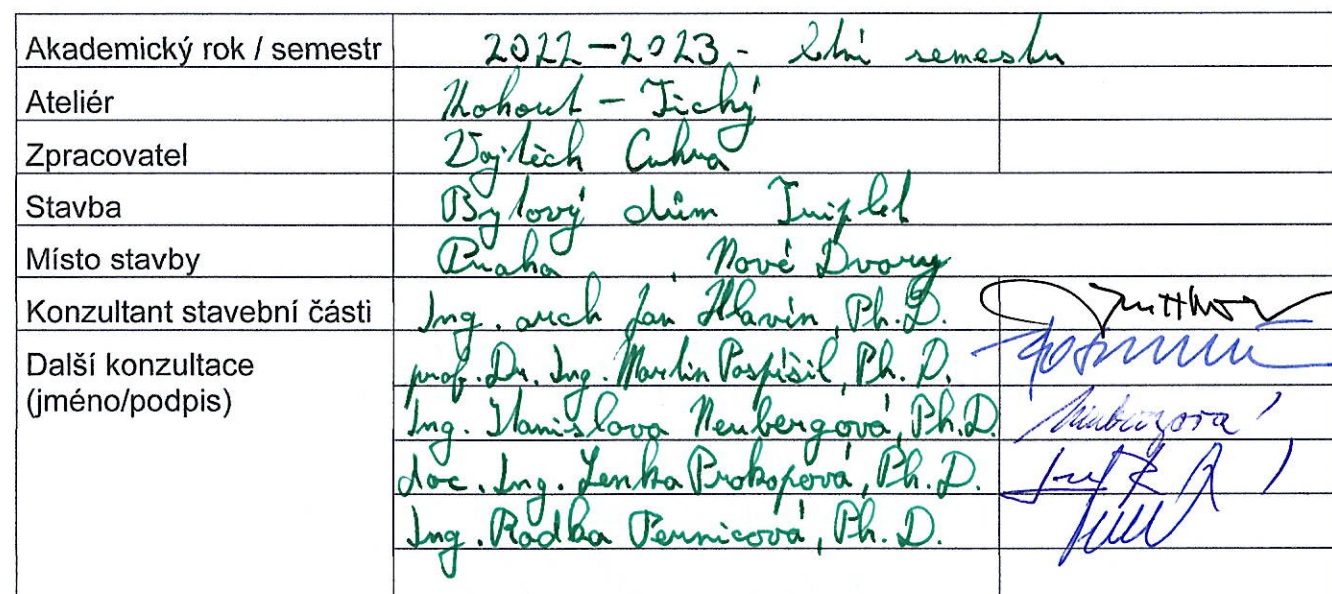 Akademický rok / semestr 2022-2023 - letní semestr
Ateliér Kohout - Tichý
Zpracovatel Vojtěch Cuhra
Stavba Bytový dům Triplet
Místo stavby Praha, Nové Dvory
Konzultant stavební části Ing. arch Jan Hlavín, Ph.D.
Další konzultace prof. Dr. Ing. Martin Pospíšil, Ph. D.
(jméno/podpis)
Ing. Stanislava Neubergová, Ph.D. Neubergová
doc. Ing. Lenka Prokopová, Ph. D.
Ing. Radka Pernicová, Ph. D.